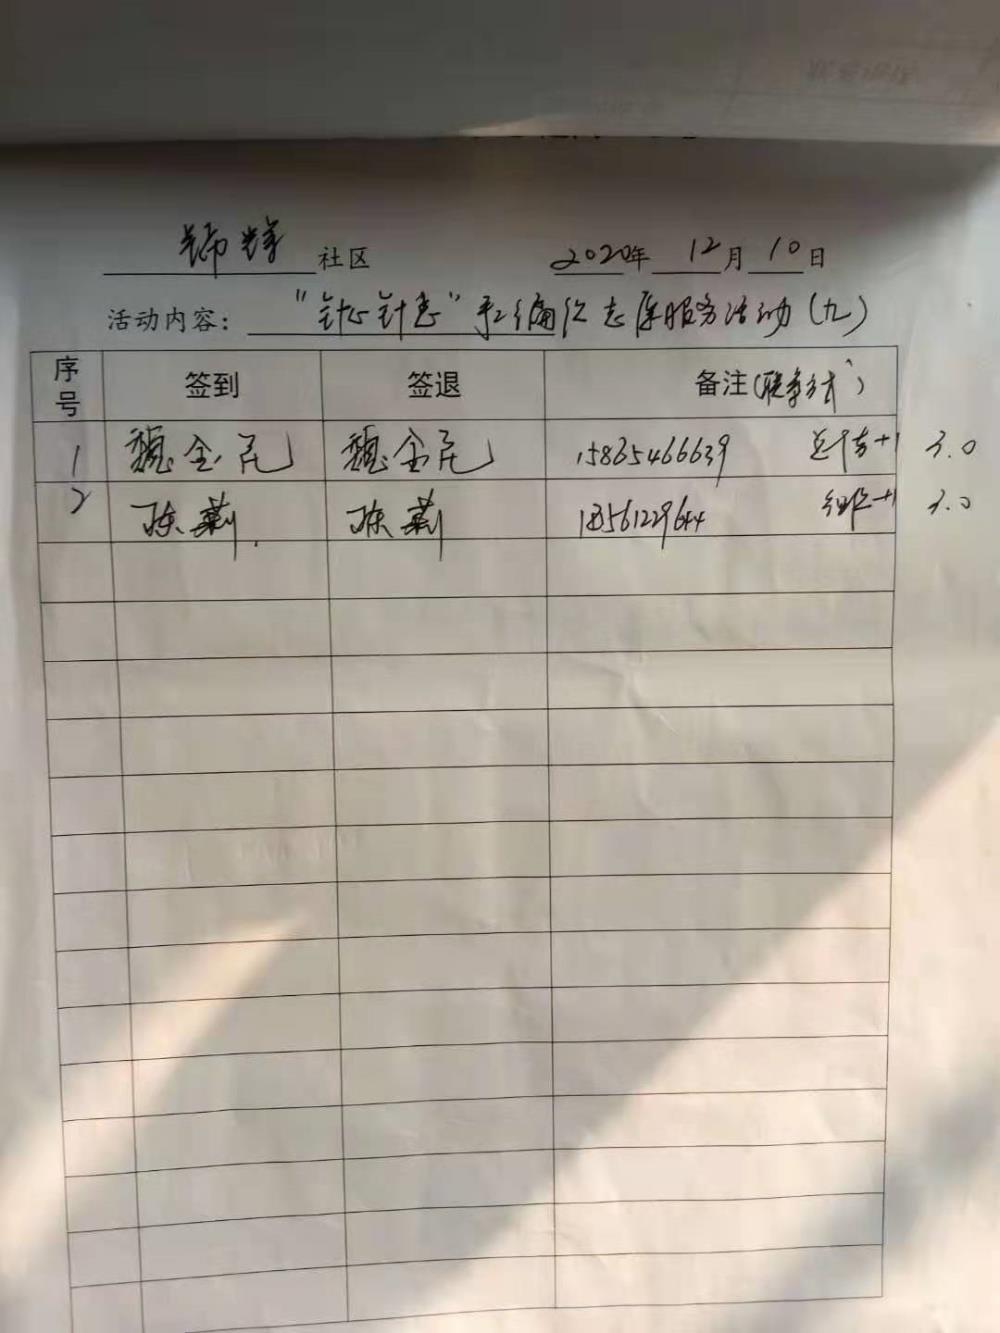 锦辉 社区 2020年 12月 10日
活动内容：“针心针意”手工编织志愿服务活动(九)
序号 签到 签退 备注(联系方式)
1 魏金元 魏金元 15865466639 +1 3.0
2 陈莉 陈莉 18561229644 组织+1 3.0